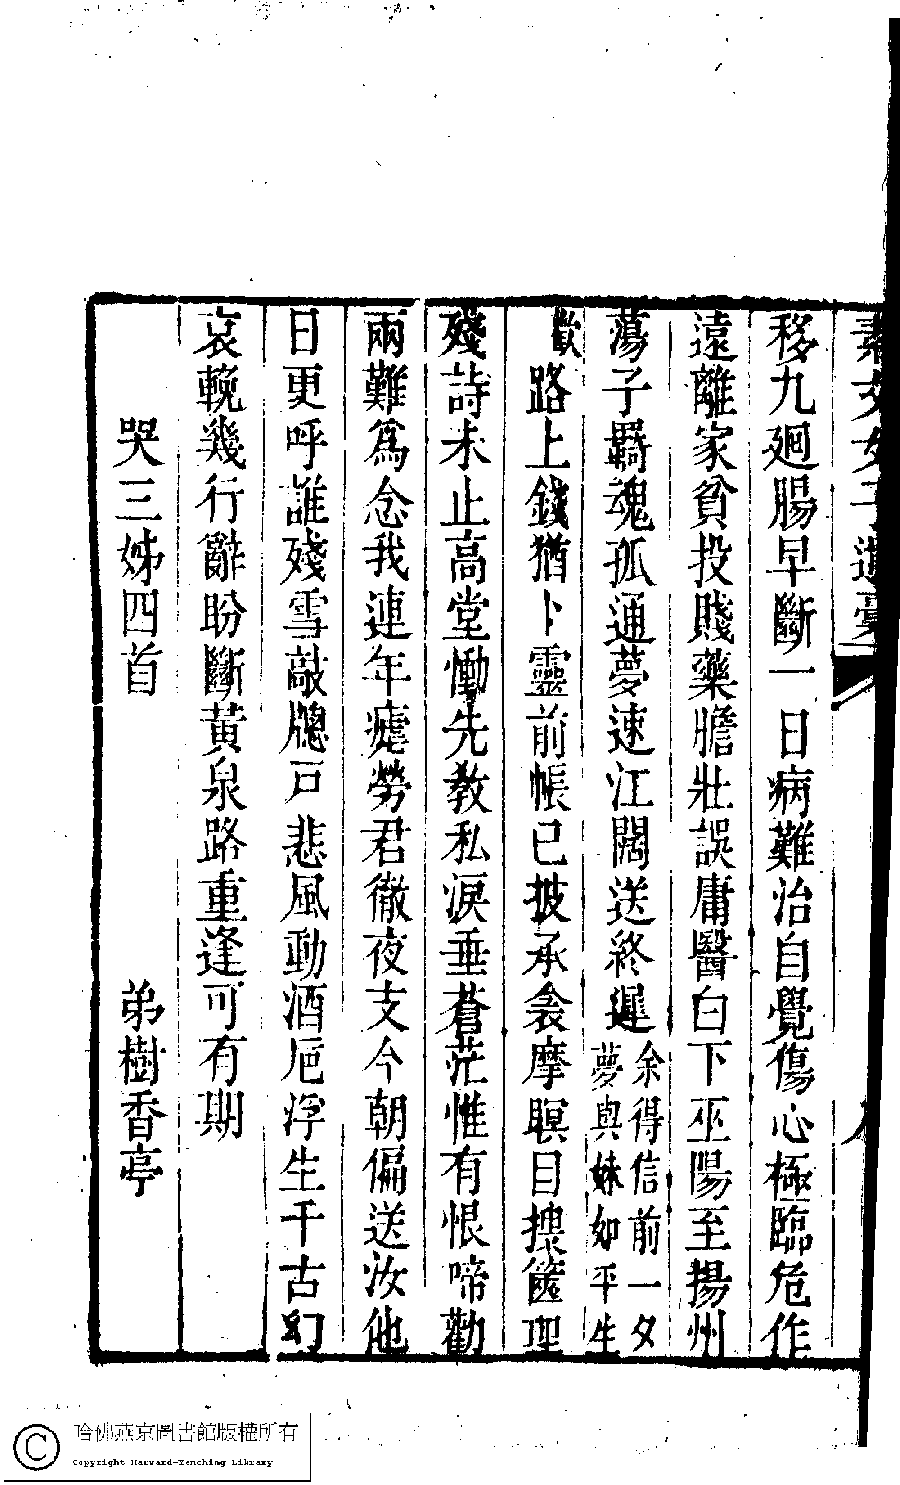 素文女子遺稾
移九廻腸早斷一日病難治自覺傷心極臨危作
遠離家貧投賤藥膽壯誤庸醫白下巫陽至揚州
蕩子羇魂孤通夢速江闊送終遲余得信前一夕
夢與妹如平生
歡路上錢猶卜靈前帳已披承衾摩瞑目搜篋理
殘詩未止高堂慟先教私淚垂蒼茫惟有恨啼勸
兩難爲念我連年瘧勞君徹夜支今朝偏送汝他
日更呼誰殘雪敲牕戸悲風動酒卮浮生千古幻
哀輓幾行辭盼斷黃泉路重逢可有期
哭三姊四首 弟樹香亭
哈佛燕京圖書館版權所有
Copyright Harvard-Yenching Library